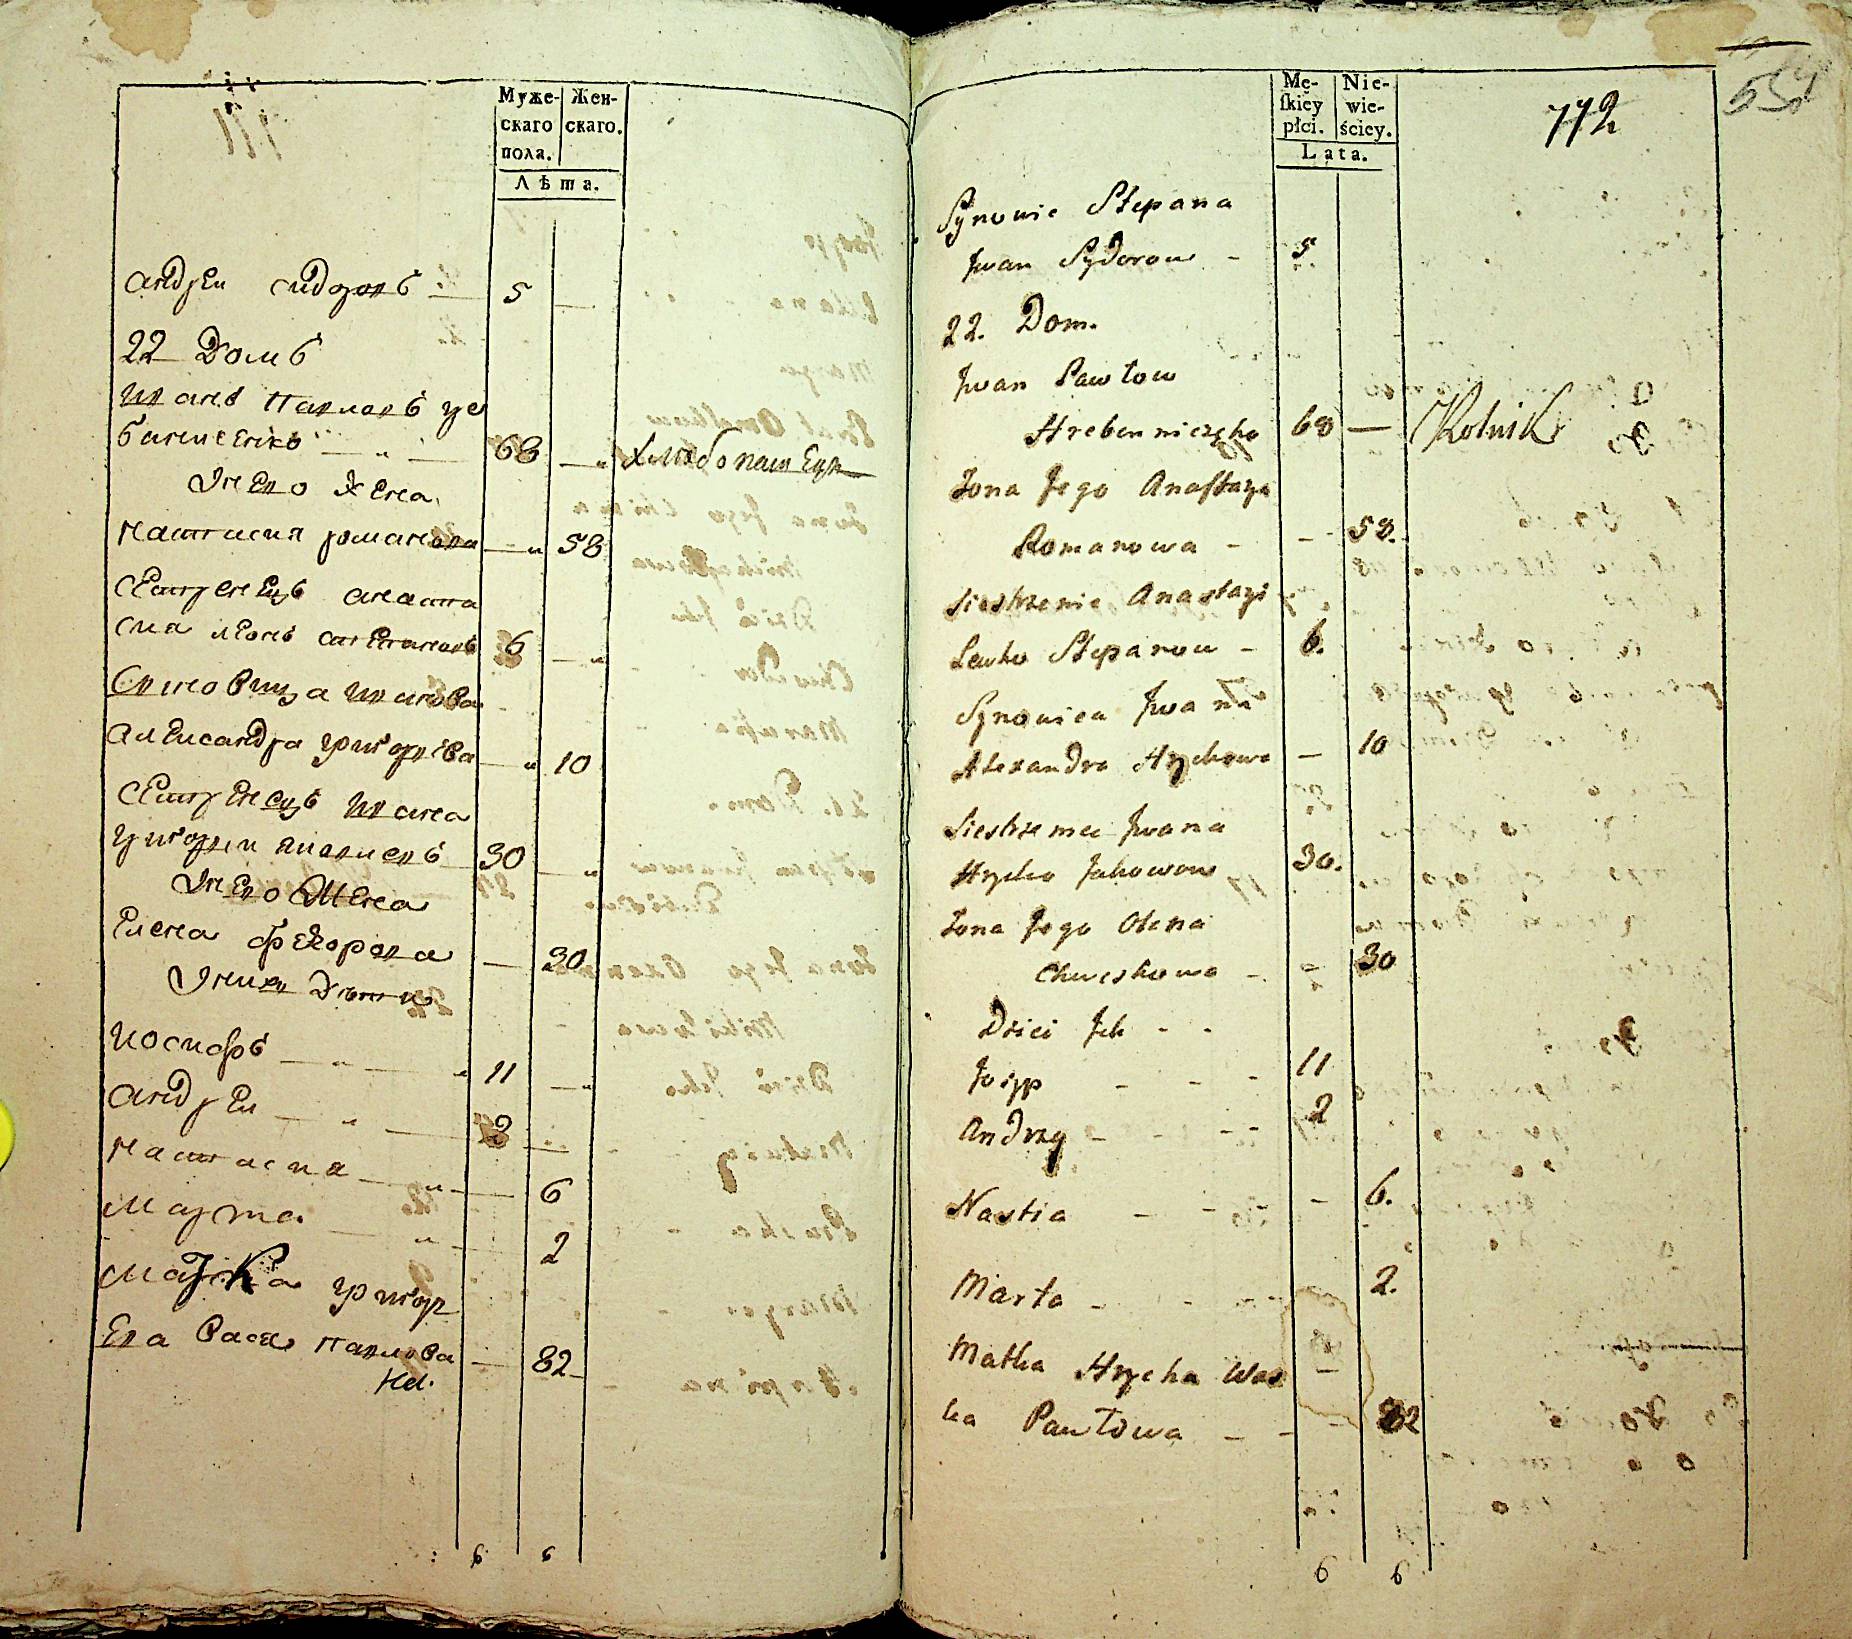 Муже-
скаго
пола.
Жен-
скаго.
Лѣта.
андреи сидоровъ 5
22 Домъ
иванъ павловъ гре
бенниченко 68 хлебопашецъ
Его жена
настасия романова 58
сестренецъ анаста
сиа левко степановъ 6
Синовица иванова
александра григориева 10
сестренецъ ивана
григореи яковлевъ 30
Его Жена
елена федорова 30
Их дети
иосифъ 11
андреи 2
настасия 6
марта 2
матка григор
ева васа павлова 82
6 6
Mę-
skiey
płci.
Nie-
wie-
ściey.
Lata.
772
Synowie Stepana
Jwan Sydorow - 5
22. Dom.
Jwan Pawłow
Hrebenniczenko 68 — Rolnik
Żona Jego Anastazya
Romanowa - - 58.
Siestrzenic Anastazi
Lewko Stepanow - 6.
Synowica Jwana
Alexandra Hrychowa - 10
Siestrzeniec Jwana
Hryćko Jakowow 30.
Żona Jego Olena
Chweskowa - - 30
Dzieci Jch - -
Josyp - - - 11
Andrzy - - - - 2
Nastia - - - 6.
Marta - - 2.
Matka Hrycka Was
ka Pawłowa - - - 82
6 6